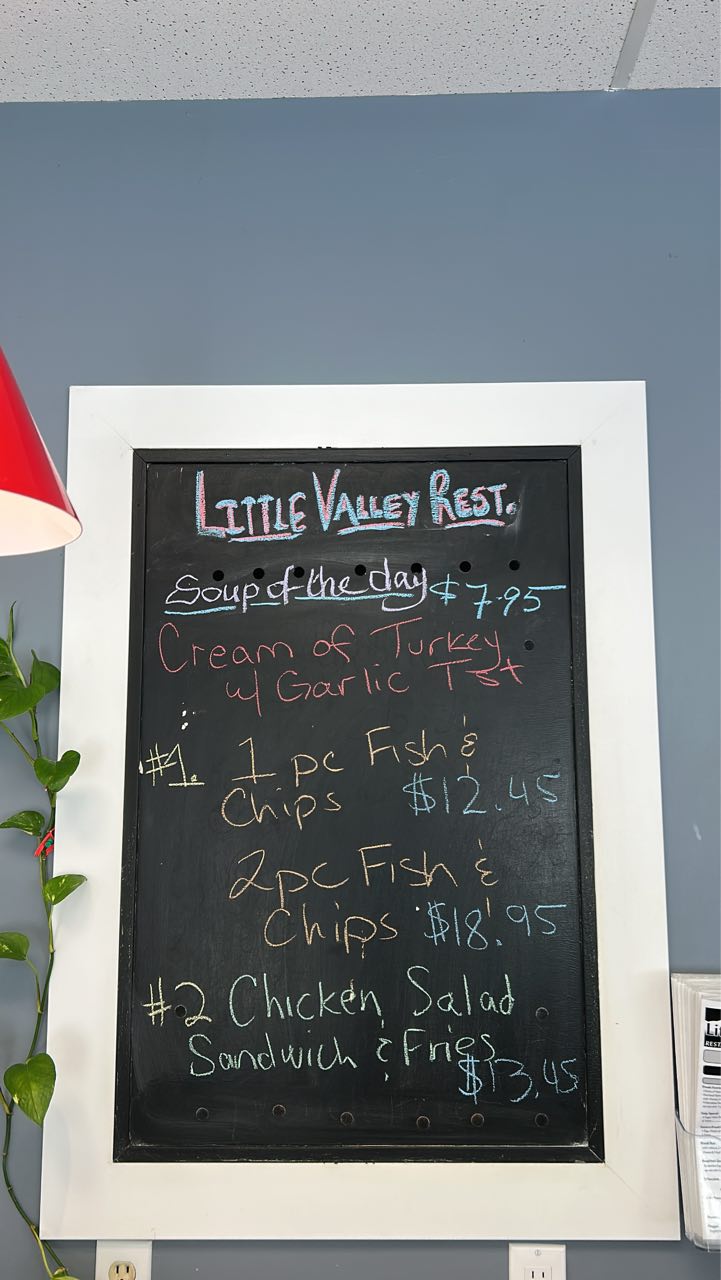 LITTLE VALLEY REST.
Soup of the day $7.95
Cream of Turkey
w/ Garlic Tst
#1. 1 pc Fish &
Chips $12.45
2pc Fish &
Chips $18.95
#2 Chicken Salad
Sandwich & Fries
$13.45